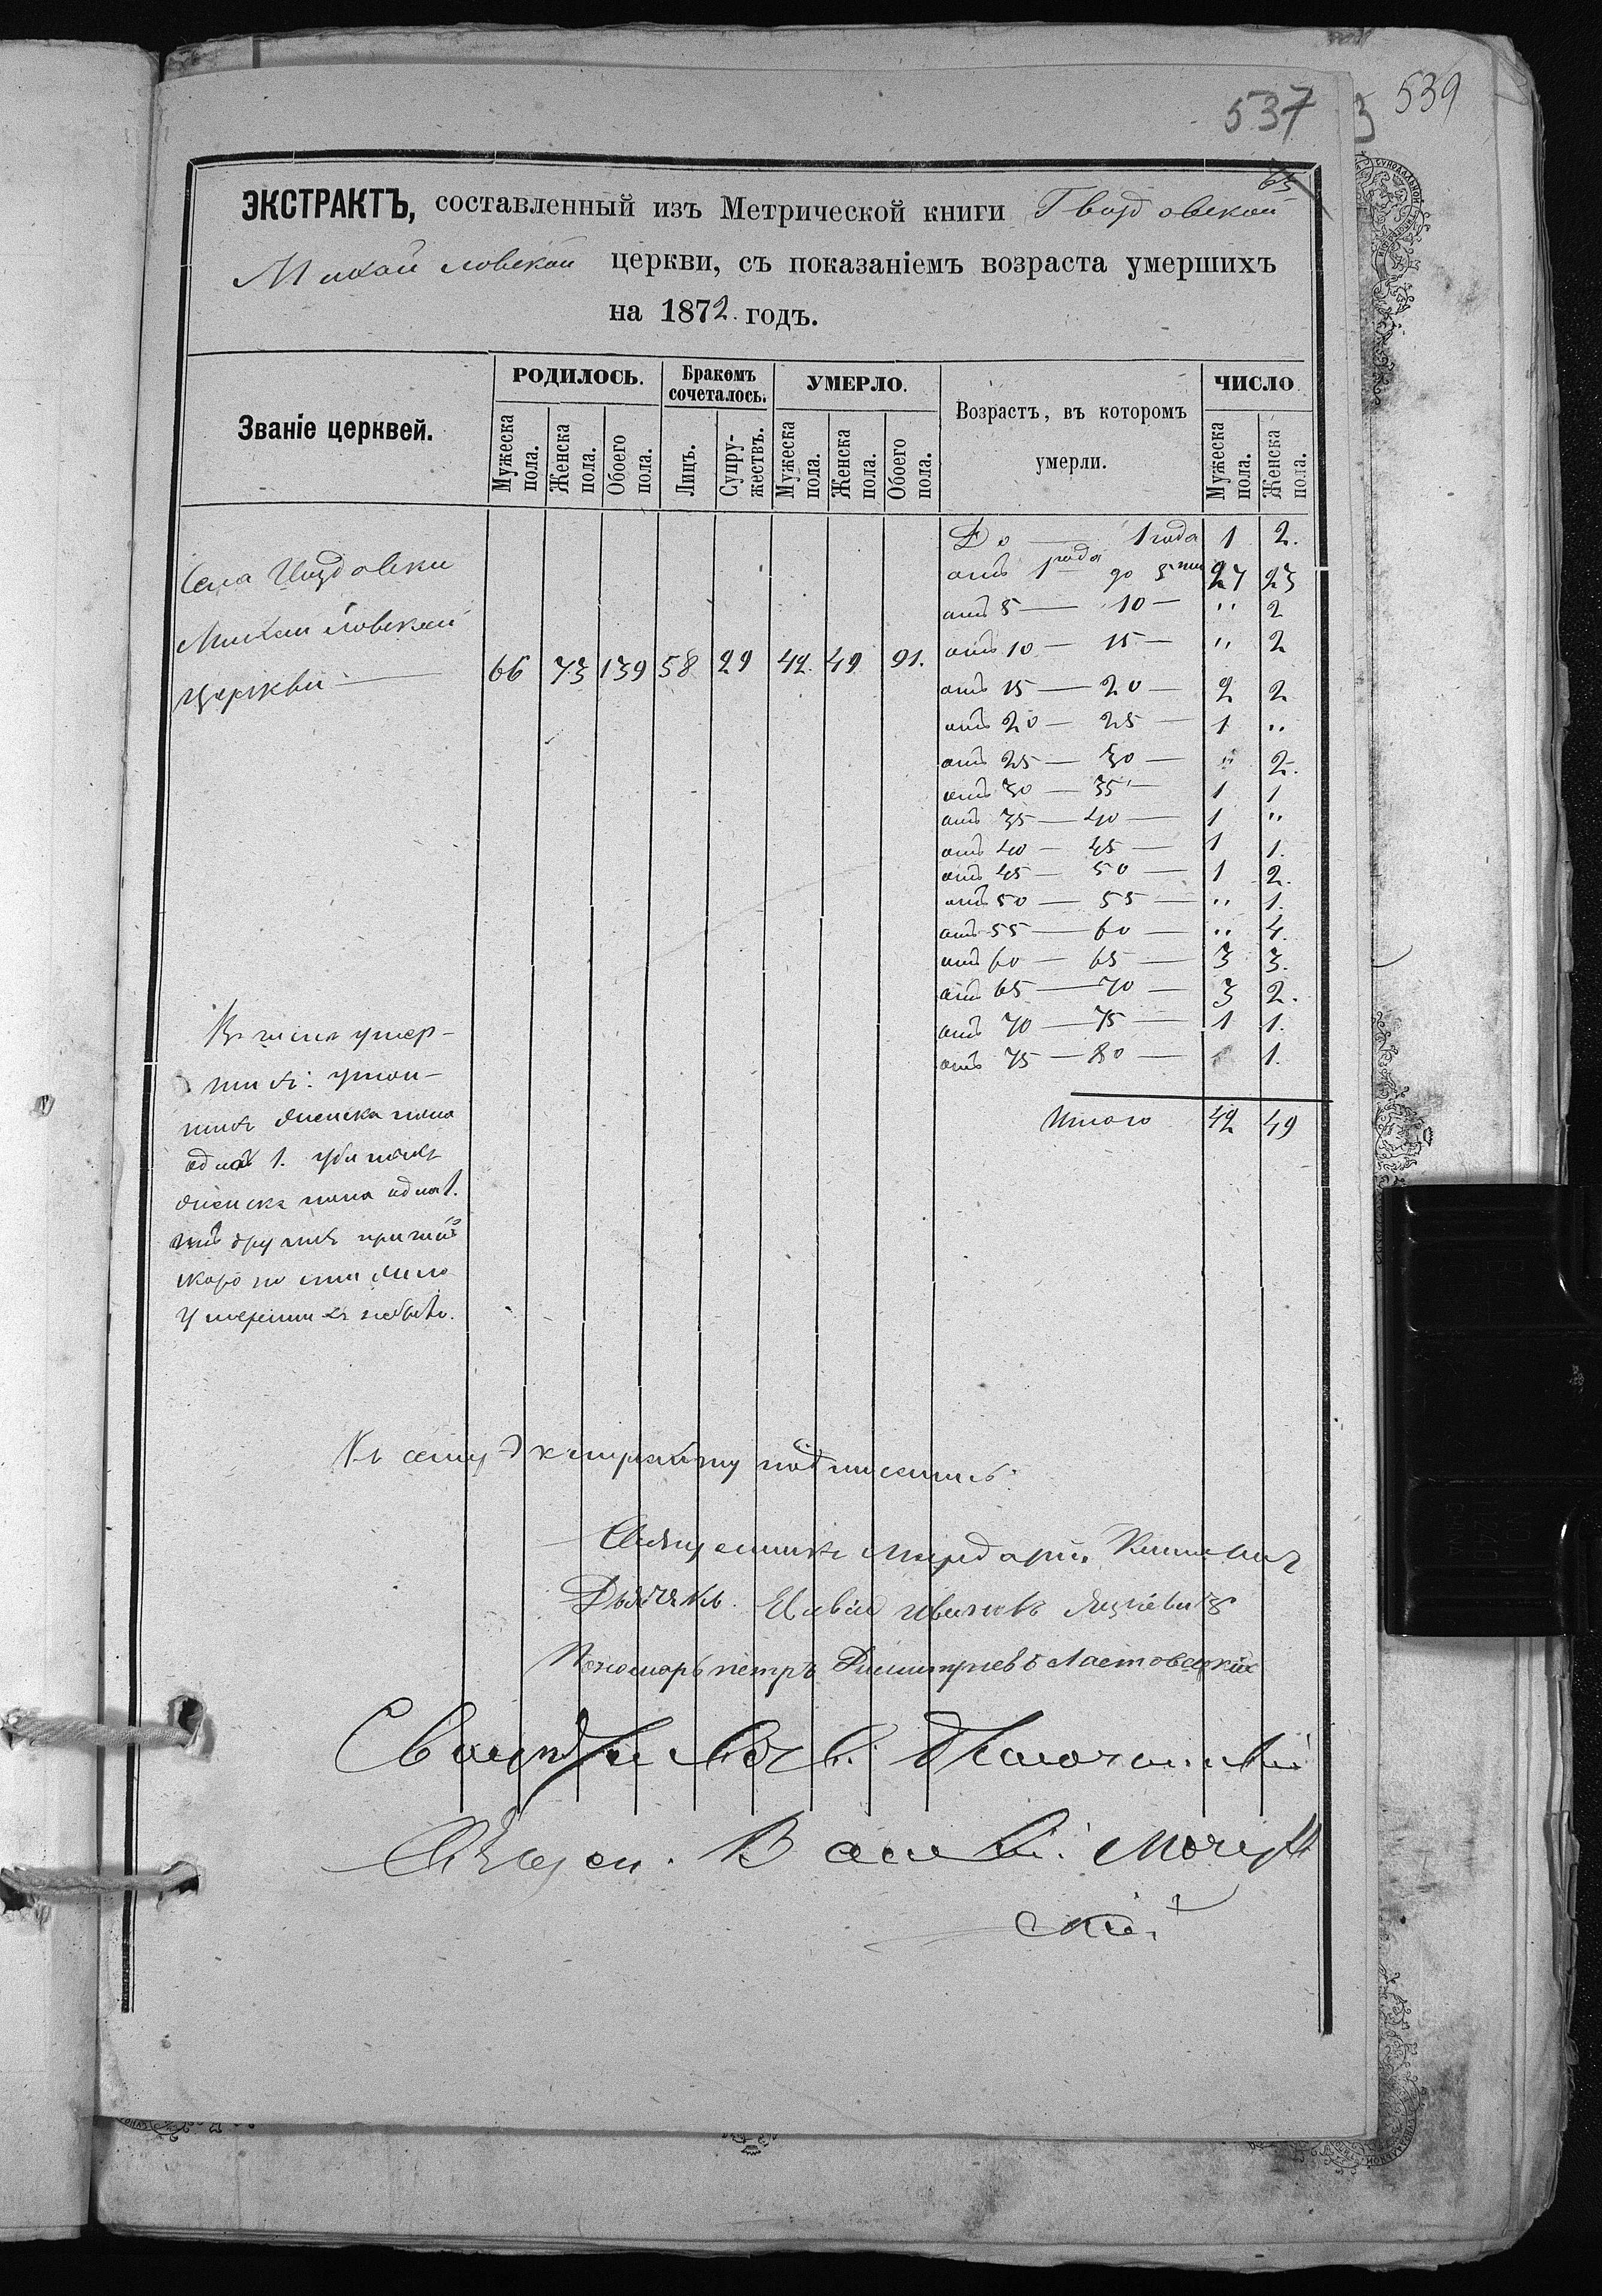 537
539
63
ЭКСТРАКТЪ, составленный изъ Метрической книги Гвоздовской
Михайловской церкви, съ показаніемъ возраста умершихъ
на 1872. годъ.
Званіе церквей.
РОДИЛОСЬ.
Бракомъ сочеталось.
УМЕРЛО.
Возрастъ, въ которомъ умерли.
ЧИСЛО
Мужеска пола.
Женска пола.
Обоего пола.
Лицъ.
Супружествъ.
Мужеска пола.
Женска пола.
Обоего пола.
Мужеска пола.
Женска пола.
Села
Михайловской
церкви — 66 73 139 58 29 42. 49 91.
До — 1 года 1 2.
отъ 1 года до 5ти 27 23
отъ 5 — 10 — " 2
отъ 10 — 15 — " 2
отъ 15 — 20 — 2 2
отъ 20 — 25 — 1 "
отъ 25 — 30 — " 2.
отъ 30 — 35 — 1 1
отъ 35 — 40 — 1 "
отъ 40 — 45 — 1 1.
отъ 45 — 50 — 1 2.
отъ 50 — 55 — " 1.
отъ 55 — 60 — " 4.
отъ 60 — 65 — 3 3.
отъ 65 — 70 — 3 2.
отъ 70 — 75 — 1 1.
отъ 75 — 80 — 1.
Итого 42 49
Въ числѣ умер-
шихъ: утоп-
шихъ женска пола
одна 1.
женска пола одна 1.
отъ другихъ
скоропостижно
умершихъ небыло.
Къ сему Экстракту подписались:
Священникъ
Дьячекъ
Пономарь петръ Димитріевъ Ластовецкій
Свящ
Священ. Василій
скій